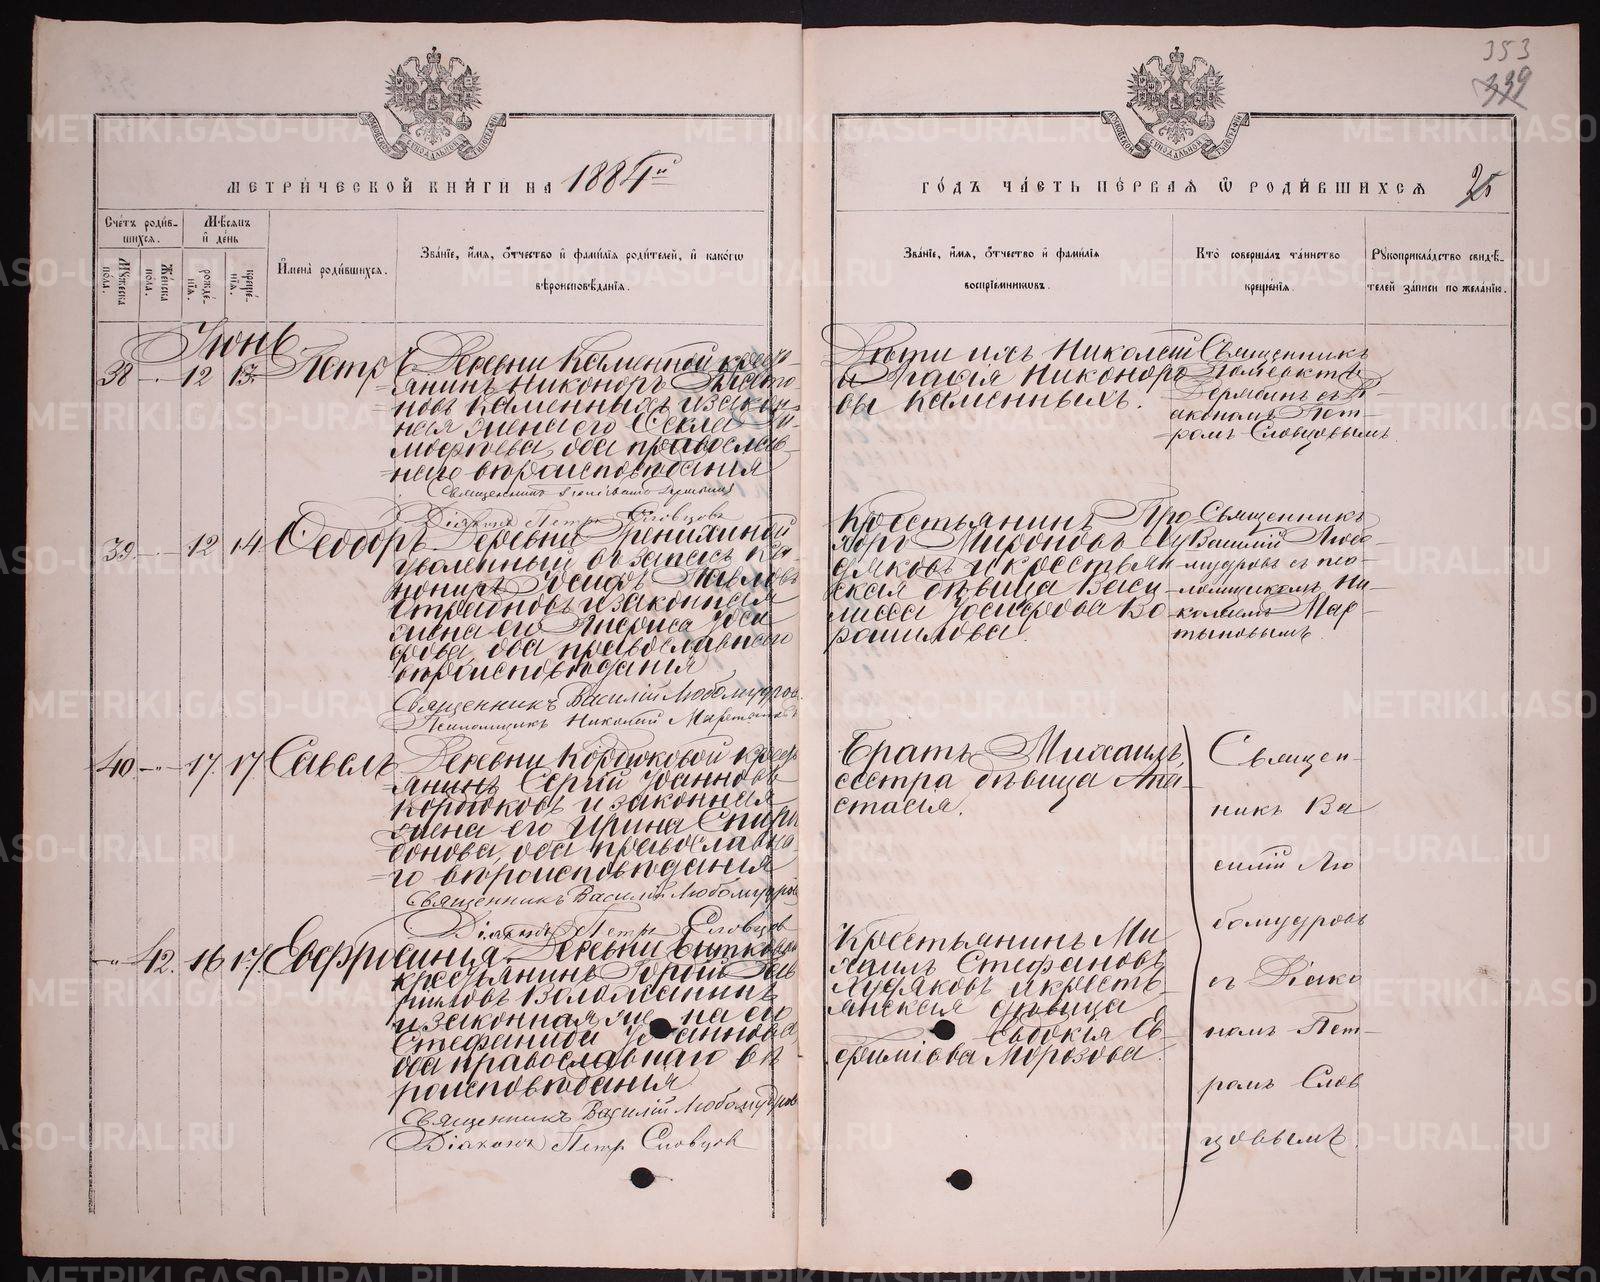 353
339
МЕТРИЧЕСКОЙ КНИГИ НА 1884й
ГОДЪ ЧАСТЬ ПЕРВАЯ Ѿ РОДИВШИХСЯ
25
Счетъ родив-
шихся.
Мѣсяцъ
и день
Мужеска
пола.
Женска
пола.
рожде-
нія.
креще-
нія.
Имена родившихся.
Званіе, имя, отчество и фамилія родителей, и какогѡ
вѣроисповѣданія.
Званіе, имя, отчество и фамилія
воспріемниковъ.
Кто совершалъ таинство
крещенія.
Рукоприкладство свидѣ-
телей записи по желанію.
Іюнь
38 12 13 Петръ
Деревни Каменной кресть-
янинъ Никоноръ
новъ Каменныхъ и закон-
ная жена его Ѳекла Ти-
моѳеева, оба православ-
наго вѣроисповѣданія
Священникъ
Діаконъ Петръ Словцовъ
Дѣти ихъ Николай
и Никоноро
вы Каменныхъ.
Священникъ
съ Ді-
акономъ Пет-
ромъ Словцовымъ
39 12 14 Ѳеодоръ
Деревни
уволенный въ запасъ ка
нониръ Іосифъ Павловъ
и законная
жена его Лариса Іоси
фова, оба православнаго
вѣроисповѣданія
Священникъ Василій Любомудровъ
Псаломщикъ Николай Мартыновъ
Крестьянинъ Про
хоръ Мироновъ Ху
дяковъ и крестьян
ская дѣвица Васи
лисса Іосифова Во
рошилова.
Священникъ
Василій Любо-
мудровъ съ пса-
ломщикомъ Ни-
колаемъ Мар-
тыновымъ.
40 17 17 Савелъ
Деревни Коротковой кресть
янинъ Сергій Іоанновъ
Коротковъ и законная
жена его Ирина Спири
донова, оба православна-
го вѣроисповѣданія
Священникъ Василій Любомудровъ
Діаконъ Петръ Словцовъ
Братъ Михаилъ,
сестра дѣвица Ана
стасія.
Священ-
никъ Ва
силій Лю
бомудровъ
съ Діако
номъ Пет-
ромъ Слов
цовымъ.
42. 16 17 Евфросинія.
Деревни
крестьянинъ Гав
риловъ
и законная жена его
Стефанида Іоаннова
оба православнаго вѣ
роисповѣданія
Священникъ Василій Любомудровъ
Діаконъ Петръ Словцовъ
Крестьянинъ Ми
хаилъ Стефановъ
Худяковъ и кресть-
янская дѣвица
Евдокія Ев
фиміева Морозова.
METRIKI.GASO-URAL.RU